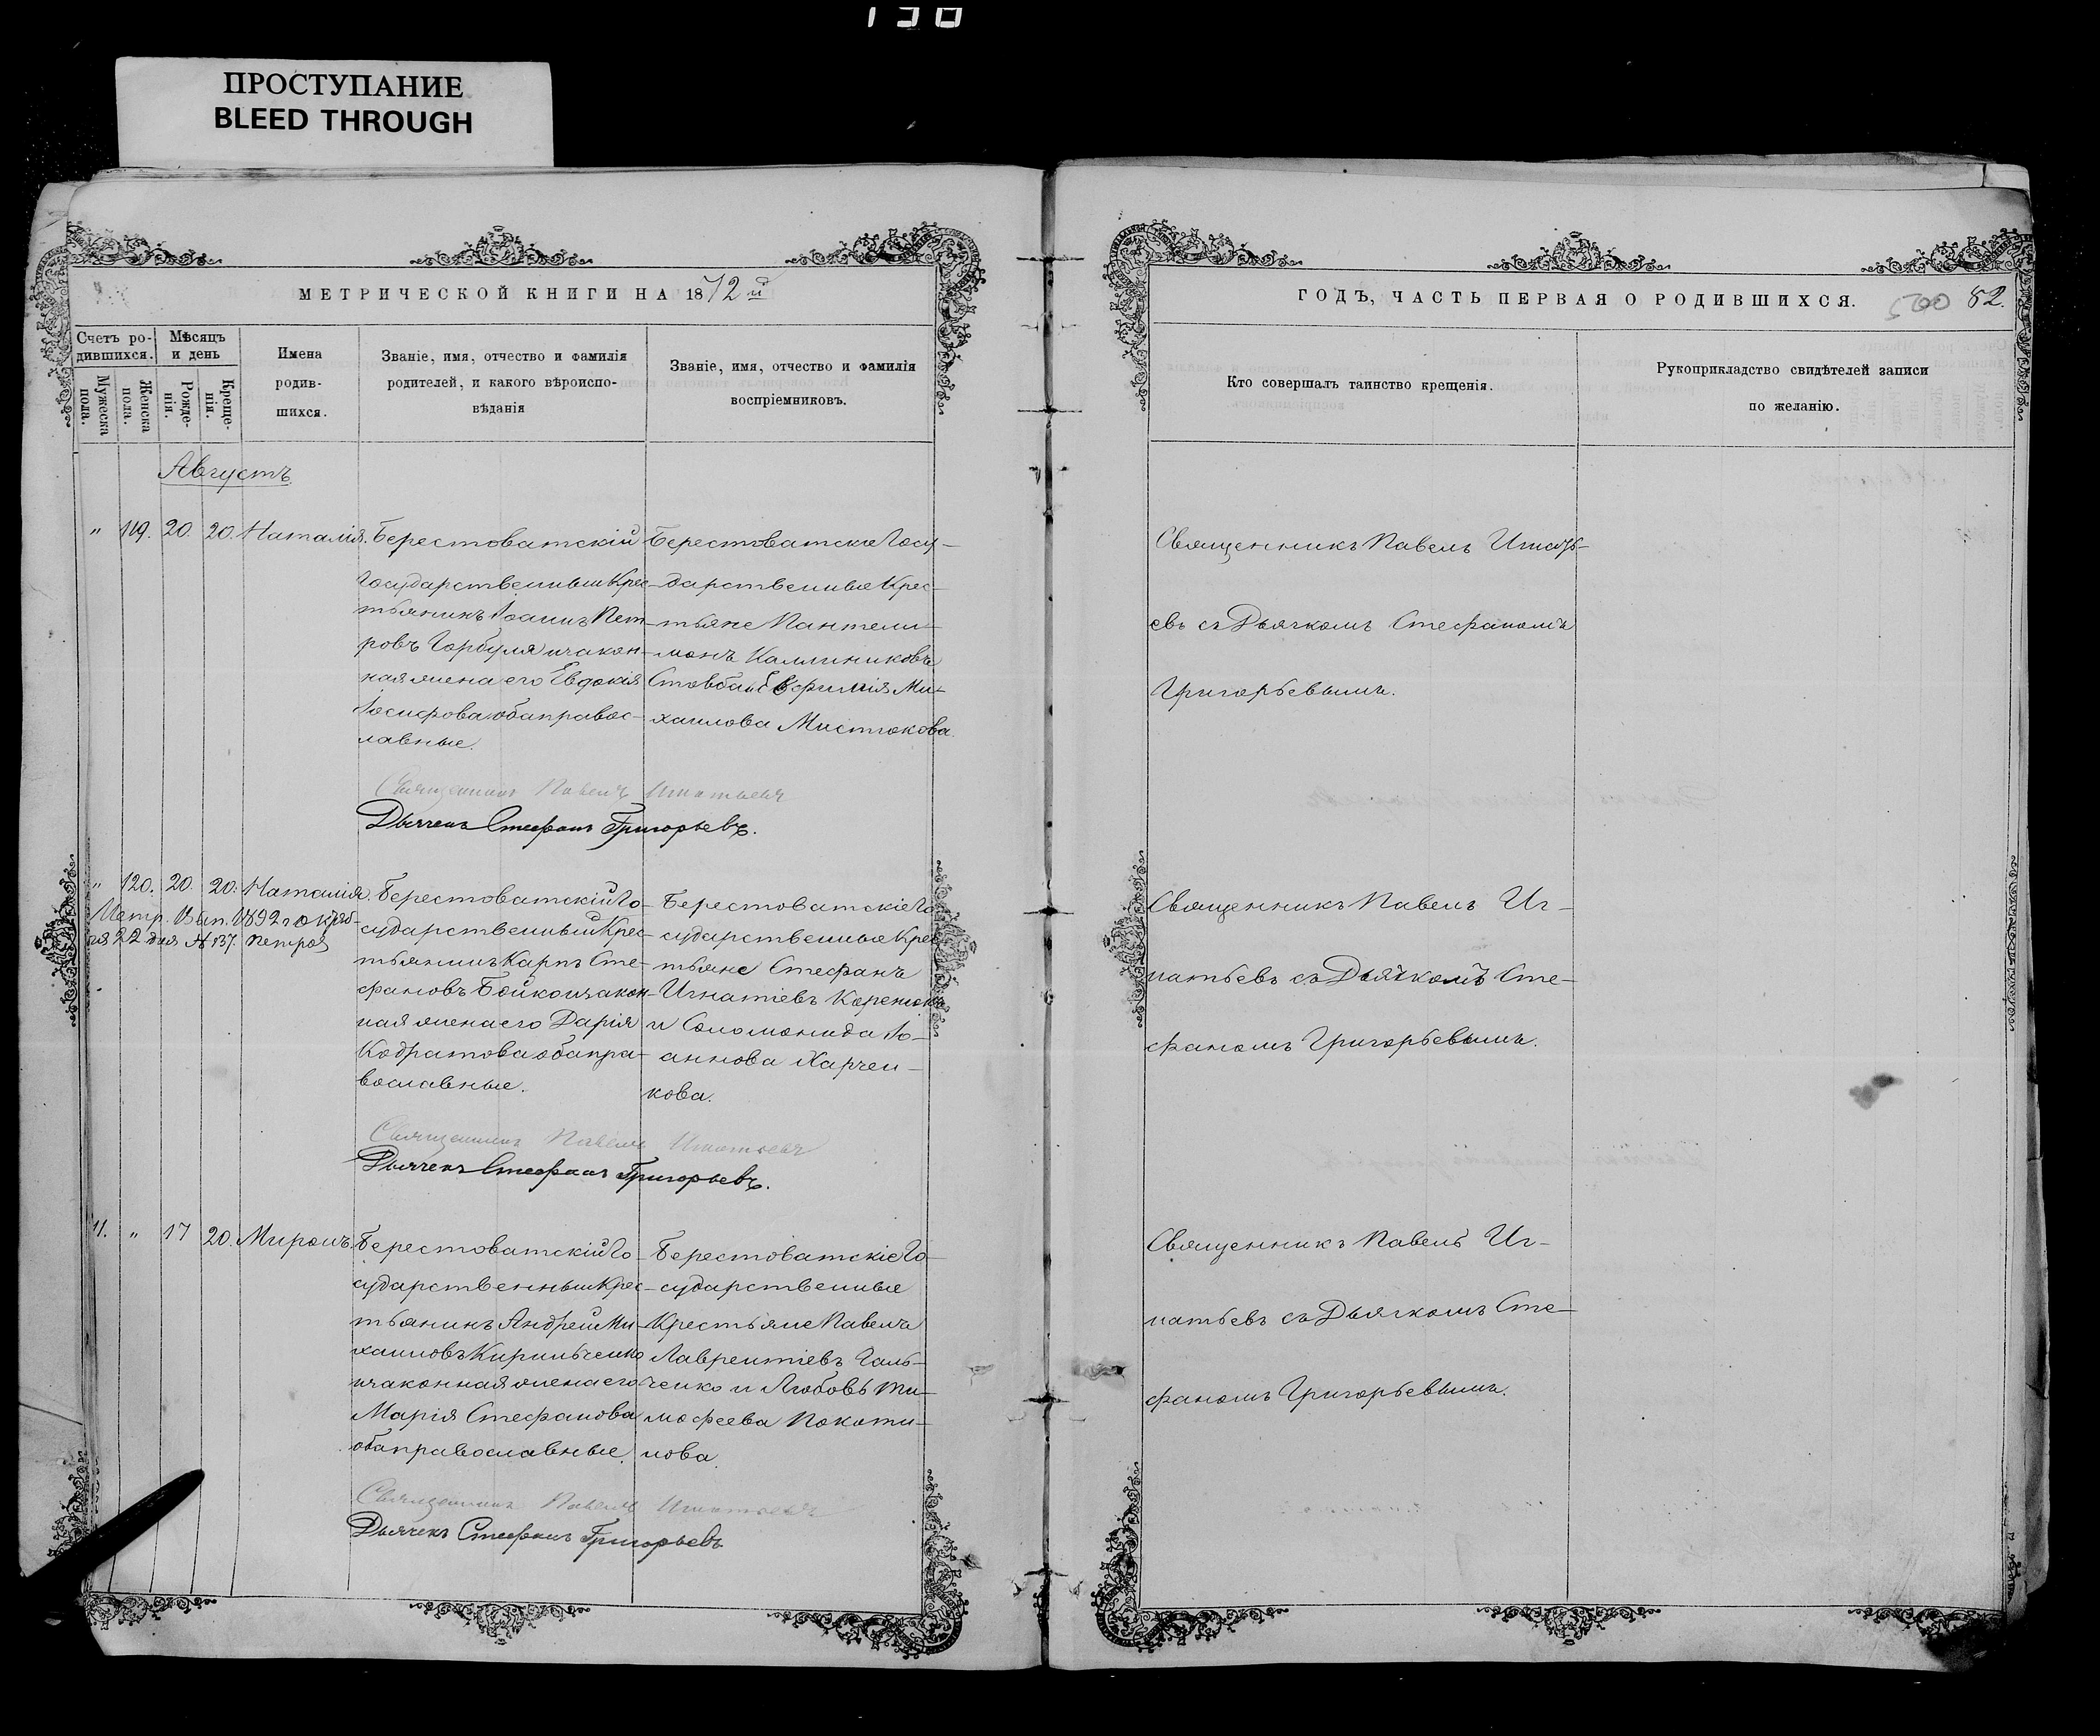 ПРОСТУПАНИЕ
BLEED THROUGH
МЕТРИЧЕСКОЙ КНИГИ НА 1872й
Счетъ ро-
дившихся.
Мѣсяцъ
и день
Мужеска
пола.
Женска
пола.
Рожде-
нія.
Креще-
нія.
Имена
родив-
шихся.
Званіе, имя, отчество и фамилія
родителей, и какого вѣроиспо-
вѣданія
Званіе, имя, отчество и фамилія
воспріемниковъ.
Августъ
" 119. 20. 20. Наталія.
Берестоватскій
Государственный Крес-
тьянинъ Іоаннъ Пет-
ровъ Горбуля и закон-
ная жена его Евдокія
Іосифова оба правос-
лавные.
Берестоватскіе Госу-
дарственные Крес-
тьяне Пантели-
монъ Каллиниковъ
Стовба и Евфимія Ми-
хаилова Мистюкова.
Священникъ Павелъ Игнатьевъ
Дьячекъ Стефанъ Григорьевъ.
" 120. 20. 20. Наталія.
Метр. Вып. 1892 го
22 дня № 137.
Берестоватскій Го-
сударственный Крес-
тьянинъ Карпъ Сте-
фановъ Бойко и закон-
ная жена его Дарія
Кодратова оба пра-
вославные.
Берестоватскіе Го-
сударственные Крес-
тьяне Стефанъ
Игнатіевъ Коренюкъ
и Соломонида Іо-
аннова Харчен-
кова.
Священникъ Павелъ Игнатьевъ
Дьячекъ Стефанъ Григорьевъ.
11. " 17 20. Миронъ.
Берестоватскій Го-
сударственный Крес-
тьянинъ Андрей Ми-
хаиловъ Кирильченко
и законная жена его
Марія Стефанова
оба православные.
Берестоватскіе Го-
сударственные
Крестьяне Павелъ
Лаврентіевъ Галь-
ченко и Любовь Ти-
мофеева Покоти-
лова.
Священникъ Павелъ Игнатьевъ
Дьячекъ Стефанъ Григорьевъ
ГОДЪ, ЧАСТЬ ПЕРВАЯ О РОДИВШИХСЯ.
500 82.
Кто совершалъ таинство крещенія.
Рукоприкладство свидѣтелей записи
по желанію.
Священникъ Павелъ Игнать-
евъ съ Дьячкомъ Стефаномъ
Григорьевымъ.
Священникъ Павелъ Иг-
натьевъ съ Дьячкомъ Сте-
фаномъ Григорьевымъ.
Священникъ Павелъ Иг-
натьевъ съ Дьячкомъ Сте-
фаномъ Григорьевымъ.